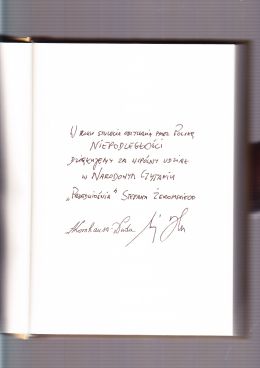 W roku stulecia odzyskania przez Polskę
NIEPODLEGŁOŚCI
dziękujemy za wspólny udział
w Narodowym Czytaniu
„Przedwiośnia" Stefana Żeromskiego
Kornhauser-Duda